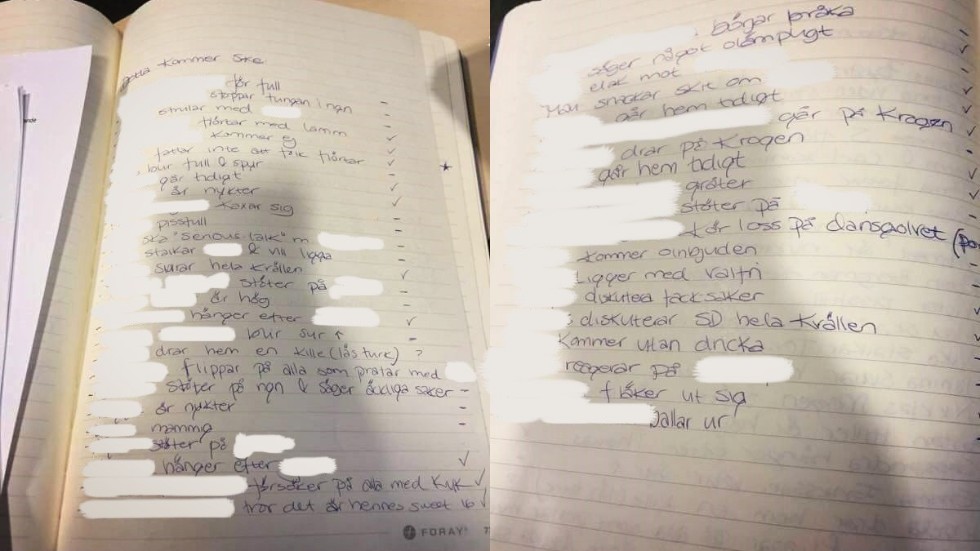 kommer ske
för full
stoppar tungan i ngn
smular med
flörtar med
kommer ej
fattar inte att folk flörtar
blir full & spyr
går tidigt
är nykter
koxar sig
pissfull
ska "serious talk" m
stalkar & vill ligga
surar hela kvällen
stöter på
är hög
hänger efter
blir sur
drar hem en kille (läs turk) ?
flippar på alla som pratar med
stöter på ngn & säger äckliga saker
är nykter
mammig
stöter på
hänger efter
försöker på alla med KUK
tror det är hennes sweet 16
FORAY
börjar bråka
säger något olämpligt
elak mot
snackar skit om
går hem tidigt
går på krogen
drar på krogen
går hem tidigt
gråter
stöter på
går loss på dansgolvet
kommer oinbjuden
Ligger med valfri
diskutera fack saker
diskuterar SD hela kvällen
kommer utan dricka
reagerar på
fläker ut sig
ballar ur